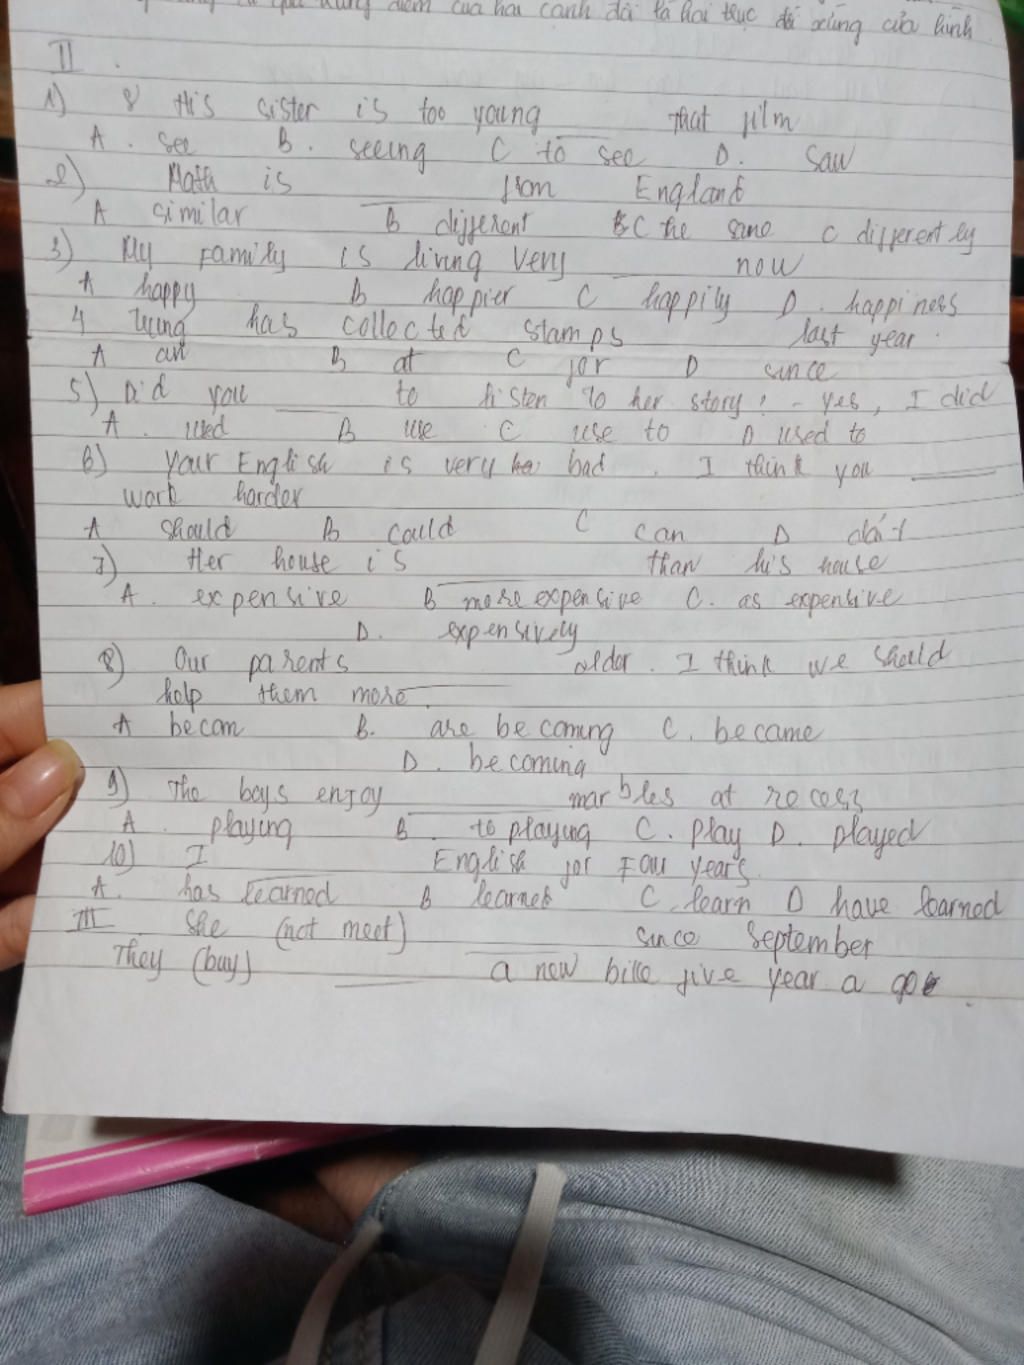 của hai cạnh đối là hai trục đối xứng của hình
II.
1) 8 His sister is too young ____ that film
A. see B. seeing C to see D. saw
2) Math is ____ from England
A similar B different C the same C differently
3) My family is living very ____ now
A happy B happier C happily D. happiness
4 has collected stamps ____ last year.
A an B at C for D since
5) Did you ____ to listen to her story? - yes, I did
A. used B use C use to D used to
6) your English is very bad. I think you ____
work harder
A should B could C can D
7) Her house is ____ than his house
A. expensive B more expensive C. as expensive
D. expensively
8) Our parents ____ older. I think we should
help them more.
A becom B. are becoming C. became
D. becoming
9) The boys enjoy ____ marbles at recess
A. playing B. to playing C. play D. played
10) I ____ English for Fou years.
A. has learned B learned C. learn D have learned
III She (not meet) ____ since September
They (buy) ____ a new bike five year a go